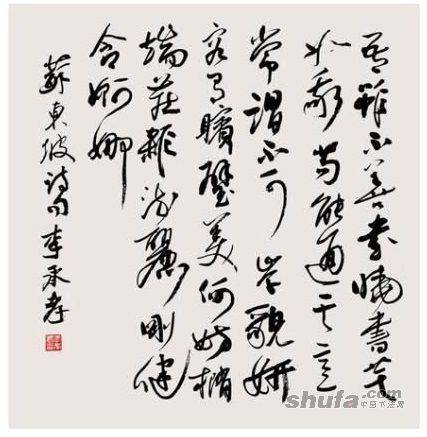 吾雖不善書曉書莫
如我苟能通其意
常謂不可学貌妍
容有矉璧美何妨橢
端莊雜流麗剛健
含婀娜
蘇東坡詩句李承孝
shufa.com
中国书法网